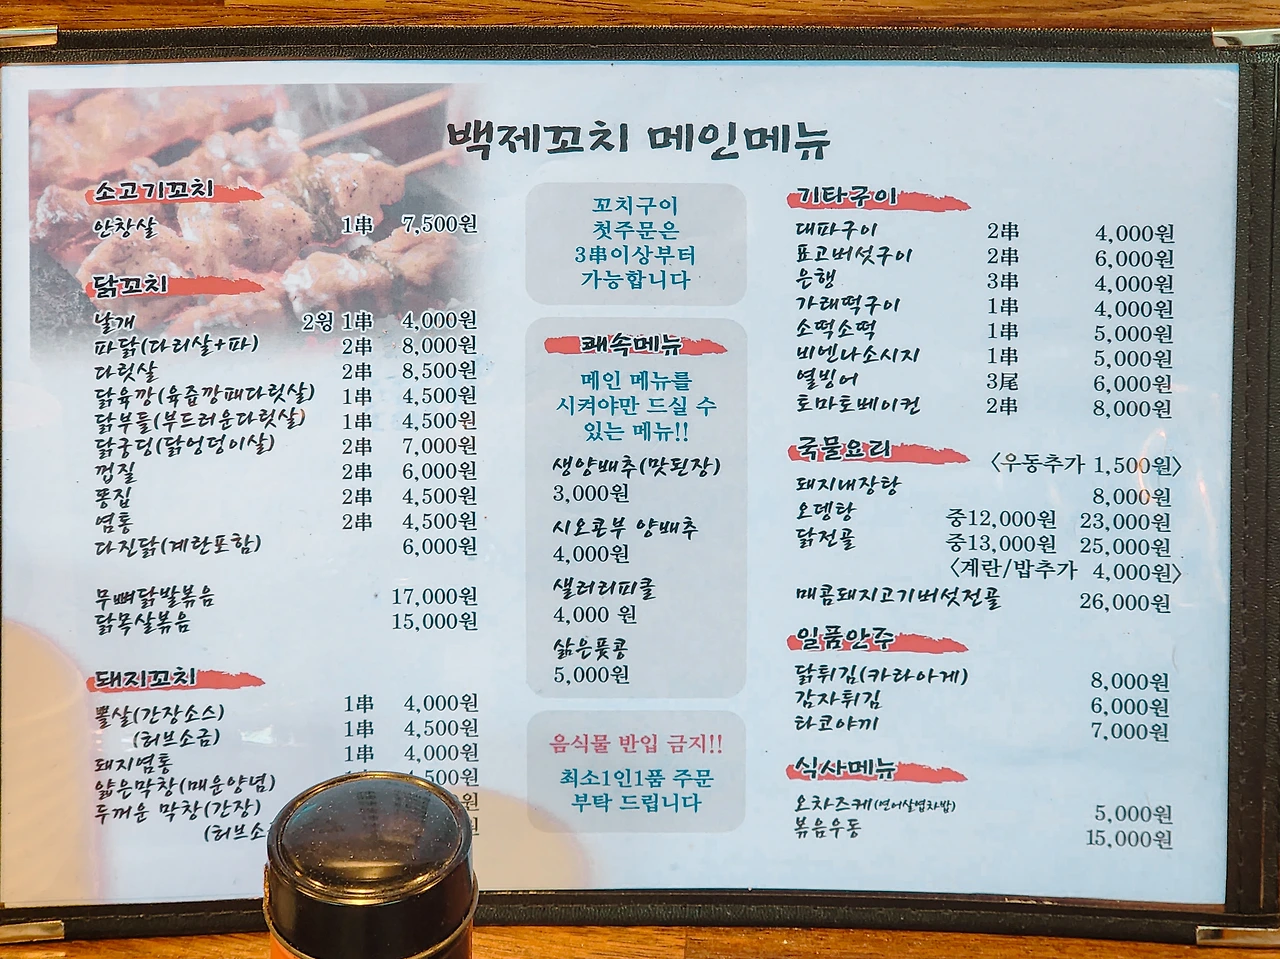 백제꼬치 메인메뉴
소고기꼬치
안창살 1串 7,500원
닭꼬치
날개 2윙 1串 4,000원
파닭(다리살+파) 2串 8,000원
다릿살 2串 8,500원
닭육깡(육즙깡패다릿살) 1串 4,500원
닭부들(부드러운다릿살) 1串 4,500원
닭궁덩(닭엉덩이살) 2串 7,000원
껍질 2串 6,000원
똥집 2串 4,500원
염통 2串 4,500원
다진닭(계란포함) 6,000원
무뼈닭발볶음 17,000원
닭목살볶음 15,000원
돼지꼬치
뽈살(간장소스) 1串 4,000원
(허브소금) 1串 4,500원
돼지염통 1串 4,000원
얇은막창(매운양념) 500원
두꺼운 막창(간장) 원
(허브소
꼬치구이
첫주문은
3串이상부터
가능합니다
쾌속메뉴
메인 메뉴를
시켜야만 드실 수
있는 메뉴!!
생양배추(맛된장)
3,000원
시오콘부 양배추
4,000원
샐러리피클
4,000 원
삶은풋콩
5,000원
음식물 반입 금지!!
최소1인1품 주문
부탁 드립니다
기타구이
대파구이 2串 4,000원
표고버섯구이 2串 6,000원
은행 3串 4,000원
가래떡구이 1串 4,000원
소떡소떡 1串 5,000원
비엔나소시지 1串 5,000원
열빙어 3尾 6,000원
토마토베이컨 2串 8,000원
국물요리 〈우동추가 1,500원〉
돼지내장탕 8,000원
오뎅탕 중12,000원 23,000원
닭전골 중13,000원 25,000원
〈계란/밥추가 4,000원〉
매콤돼지고기버섯전골 26,000원
일품안주
닭튀김(카라아게) 8,000원
감자튀김 6,000원
타코야끼 7,000원
식사메뉴
오차즈케(연어살녑차밥) 5,000원
볶음우동 15,000원